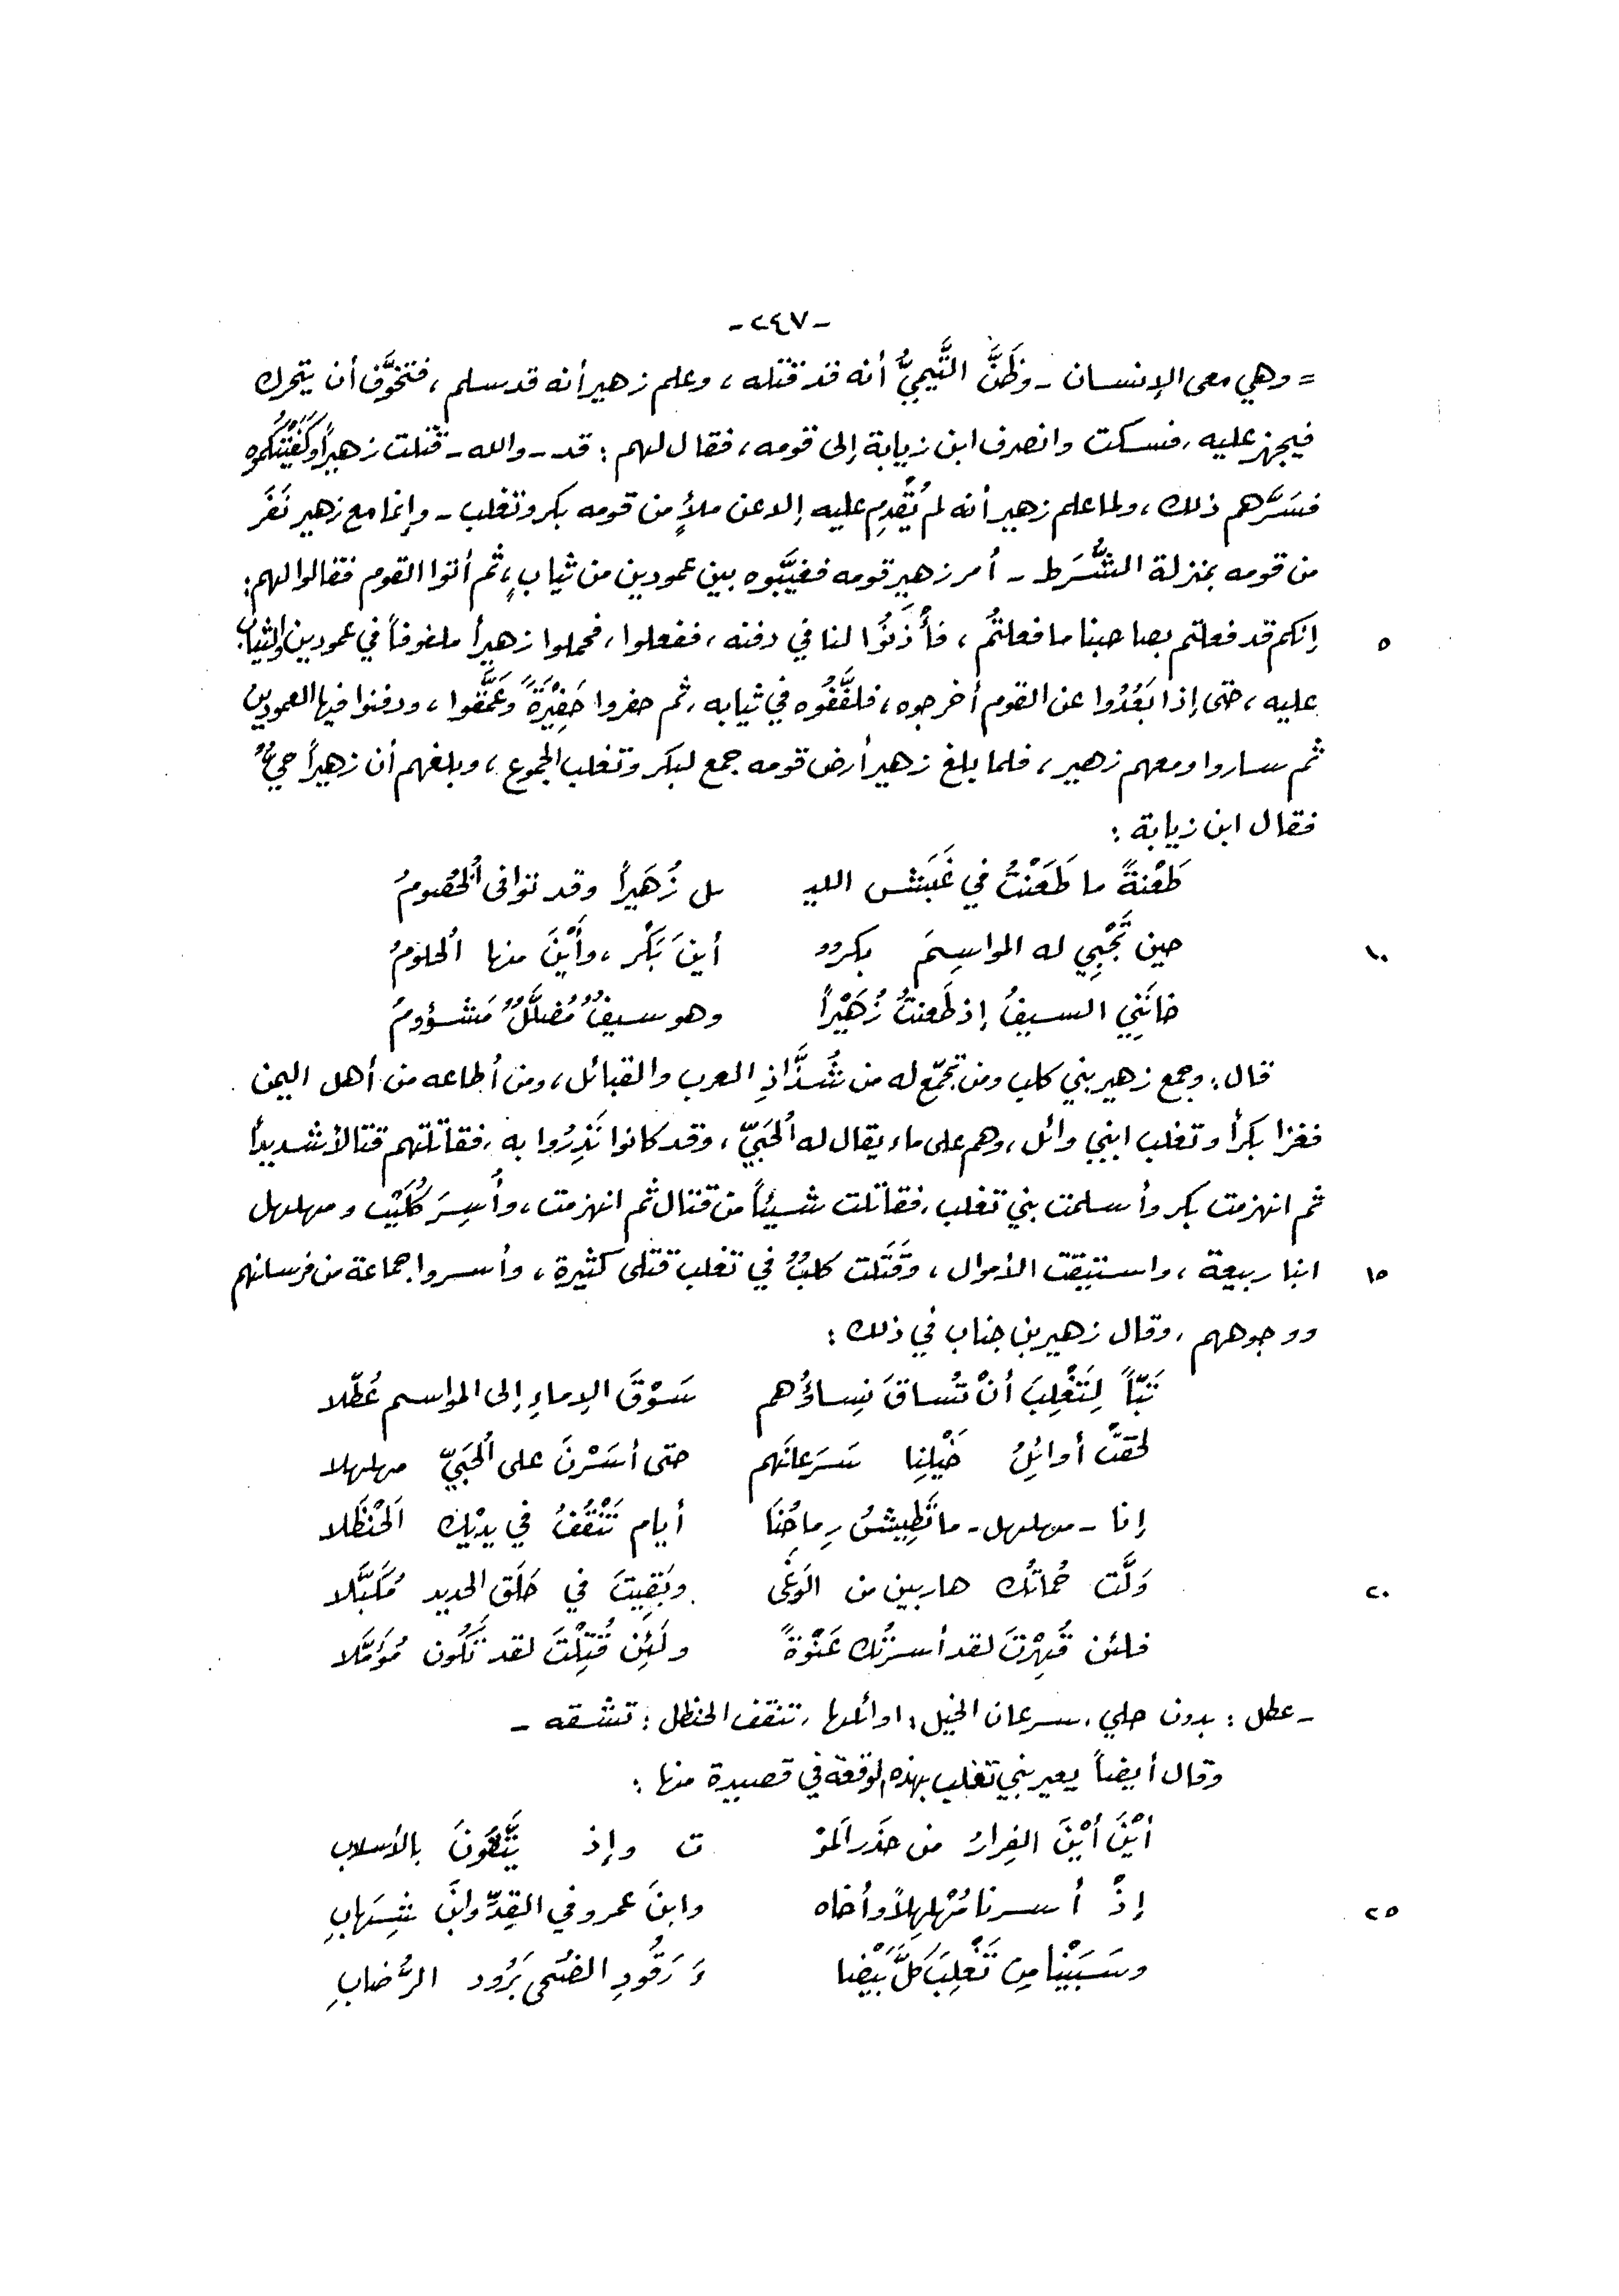 -٢٤٧-
= وهي معى الإنسان - وظَنَّ التَّيميُّ أنه قد قتله ، وعلم زهير أنه قد سلم ، فتخوَّف أن يتحرك
فيجهز عليه ، فسكت وانصرف ابن زيابة إلى قومه ، فقال لهم : قد - والله - قتلت زهيراً وكَفَيْتُكُموه
فسَرَّهم ذلك ، ولما علم زهير أنه لم يُقْدِم عليه إلا عن ملأٍ من قومه بكر وتغلب - وإنما مع زهير نَفَر
من قومه بمنزلة الشُّرَط - أمر زهير قومه فغيَّبوه بين عمودين من ثيابٍ ، ثم أتوا القوم فقالوا لهم :
٥ إنكم قد فعلتم بصاحبنا ما فعلتُم ، فأْذَنُوا لنا في دفنه ، ففعلوا ، فحملوا زهيراً ملفوفاً في عمودين والثياب
عليه ، حتى إذا بَعُدُوا عن القوم أخرجوه ، فلفَّفُوه في ثيابه ، ثم حفروا حَفِيْرَةً وَعَمَّقوا ، ودفنوا فيها العمودين
ثم ساروا ومعهم زهير ، فلما بلغ زهير أرض قومه جمع لبكر وتغلب الجموع ، وبلغهم أن زهيراً حيٌّ
فقال ابن زيابة :
طَعْنةً ما طَعَنْتُ في غَبَش الليـ ـل زُهَيراً وقد توافى الخُصُومُ
١٠ حين تَجْبِي له المواسِمَ بكرٌ أينَ بَكْر ، وأَيْنَ منها الحُلومُ
خانَنِي السيفُ إذ طَعنتُ زُهَيْراً وهو سيفٌ مُضَلَّلٌ مَشؤومُ
قال : وجمع زهير بني كلب ومن تجمّع له من شُذَّاذِ العرب والقبائل ، ومن أطاعه من أهل اليمن
فغزا بكراً وتغلب ابني وائل ، وهم على ماء يقال له الحُبَيّ ، وقد كانوا نَذِرُوا به ، فقاتلتهم قتالاً شديداً
ثم انهزمت بكر وأسلمت بني تغلب ، فقاتلت شيئاً من قتال ثم انهزمت ، وأُسِرَ كُلَيْب ومهلهل
١٥ ابنا ربيعة ، واستيقت الأموال ، وقَتَلت كلبٌ في تغلب قتلى كثيرة ، وأسروا جماعة من فرسانهم
ووجوههم ، وقال زهير بن جناب في ذلك :
تَبّاً لِتَغْلِبَ أنْ تُساقَ نِساؤُهم سَوْقَ الإماءِ إلى المواسم عُطّلا
لحقتْ أوائِلُ خَيْلِنا سَرَعانَهم حتى أسَرْنَ على الحُبَيّ مهلهلا
إنا - مهلهل - ما تَطِيشُ رِماحُنَا أيام تَنْقُفُ في يديْك الحَنْظَلا
٢٠ وَلَّت حُماتُك هاربين من الوَغَى وبَقِيتَ في حَلَق الحديد مُكَبَّلا
فلئن قُهِرْتَ لقد أسرتُك عَنْوَةً ولَئِن قُتِلْتَ لقد تَكُون مُؤمَّلا
- عطل : بدون حلي ، سرعان الخيل : اوائلها ، تنقف الحنظل : تشقه -
وقال أيضاً يعير بني تغلب بهذه الوقعة في قصيدة منها :
أيْنَ أيْنَ الفِرارُ من حَذَر المَوْ ت وإذ يَتَّقونَ بالأسلاب
٢٥ إذْ أسرنا مُهَلهِلاً وأخاه وابنَ عمرو في القِدِّ وابنَ شِهابِ
وسَبَيْنا مِن تَغْلِبَ كلَّ بَيْضا ءَ رَقُودِ الضُحى بَرُود الرُّضابِ